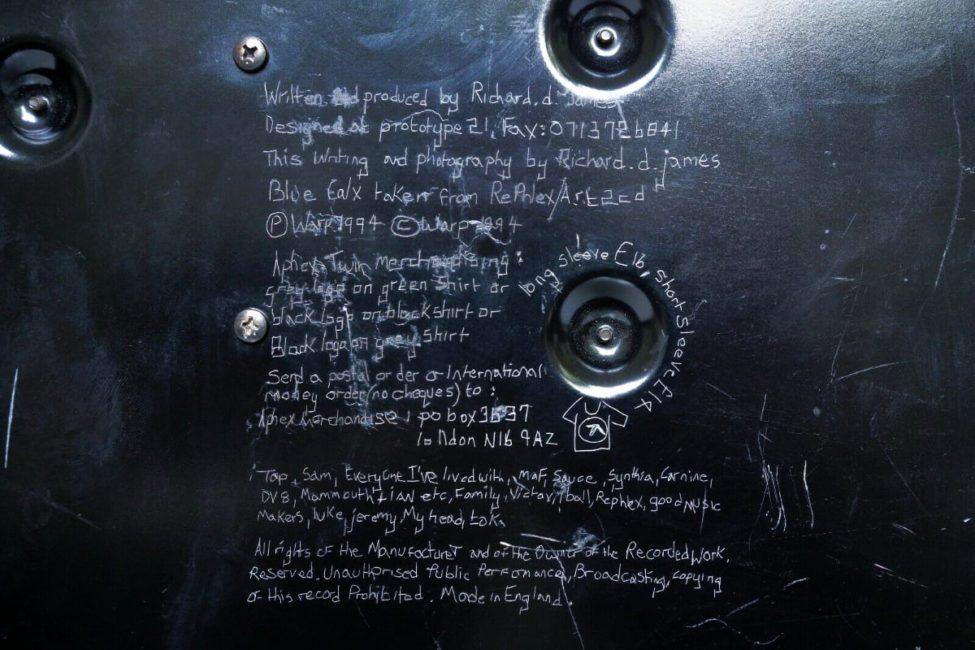 Written and produced by Richard. d. James
Designed at prototype 21, Fax: 0713726041
This Writing and photography by Richard. d. james
Blue taken from Rephlex Art 2cd
Ⓟ Warp 1994 © Warp 1994
Aphex Twin merchandising:
grey logo on green shirt or
black logo on black shirt or
Black logo on grey shirt
long sleeve £16, short sleeve £14
Send a postal order or International
money order (no cheques) to:
Aphex merchandise: po box 3637
london N16 9AZ
Tap, Sam, Everyone I've lived with, Sauce, Synthia,
DV8, Mammouth, etc, Family, Rephlex, good Music
Makers, luke, jeremy, My head,
All rights of the Manufacturer and of the Owner of the Recorded Work,
Reserved. Unauthorised Public Performance, Broadcasting, copying
of this record Prohibited. Made in England.